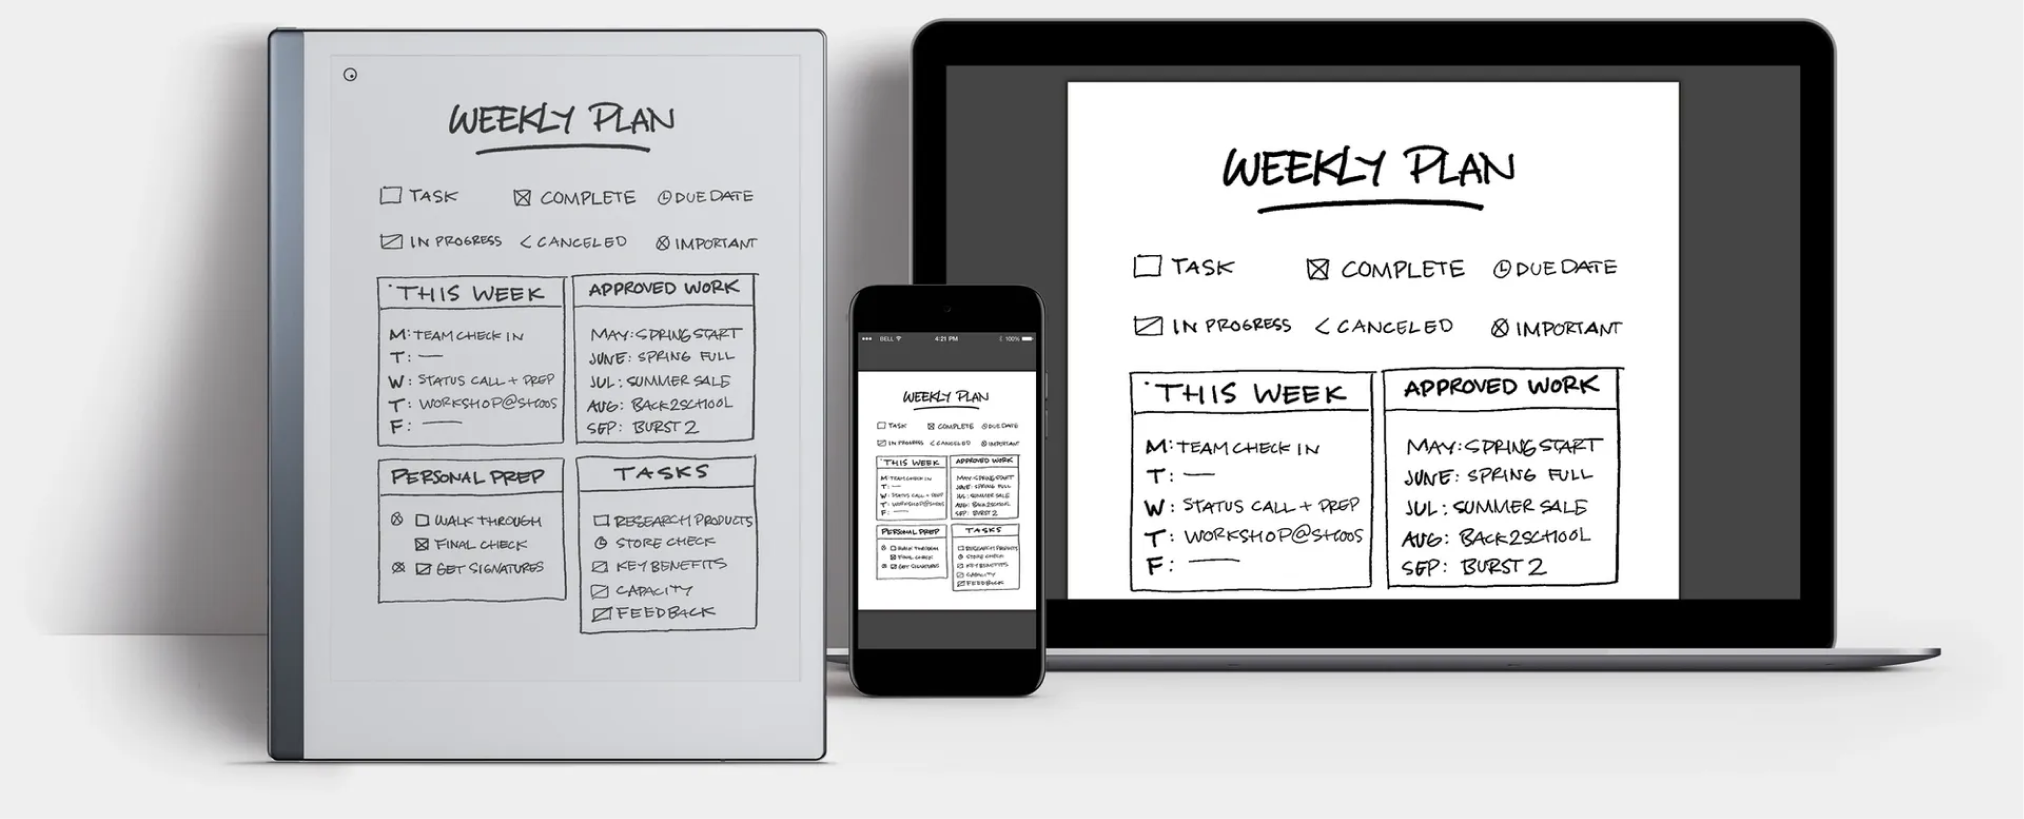 WEEKLY PLAN
TASK COMPLETE DUE DATE
IN PROGRESS < CANCELED IMPORTANT
THIS WEEK
M: TEAM CHECK IN
T: —
W: STATUS CALL + PREP
T: WORKSHOP@SHOOS
F: —
APPROVED WORK
MAY: SPRING START
JUNE: SPRING FULL
JUL: SUMMER SALE
AUG: BACK2SCHOOL
SEP: BURST 2
PERSONAL PREP
WALK THROUGH
FINAL CHECK
GET SIGNATURES
TASKS
RESEARCH PRODUCTS
STORE CHECK
KEY BENEFITS
CAPACITY
FEEDBACK
BELL 4:21 PM 100%
WEEKLY PLAN
TASK COMPLETE DUE DATE
IN PROGRESS < CANCELED IMPORTANT
THIS WEEK
M: TEAM CHECK IN
T: —
W: STATUS CALL + PREP
T: WORKSHOP@SHOOS
F: —
APPROVED WORK
MAY: SPRING START
JUNE: SPRING FULL
JUL: SUMMER SALE
AUG: BACK2SCHOOL
SEP: BURST 2
PERSONAL PREP
WALK THROUGH
FINAL CHECK
GET SIGNATURES
TASKS
RESEARCH PRODUCTS
STORE CHECK
KEY BENEFITS
CAPACITY
FEEDBACK
WEEKLY PLAN
TASK COMPLETE DUE DATE
IN PROGRESS < CANCELED IMPORTANT
THIS WEEK
M: TEAM CHECK IN
T: —
W: STATUS CALL + PREP
T: WORKSHOP@SHOOS
F: —
APPROVED WORK
MAY: SPRING START
JUNE: SPRING FULL
JUL: SUMMER SALE
AUG: BACK2SCHOOL
SEP: BURST 2